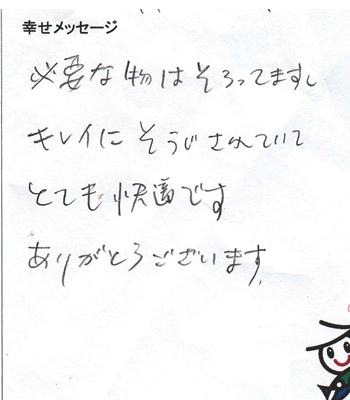 幸せメッセージ
必要な物はそろってますし
キレイにそうじされていて
とても快適です
ありがとうございます。